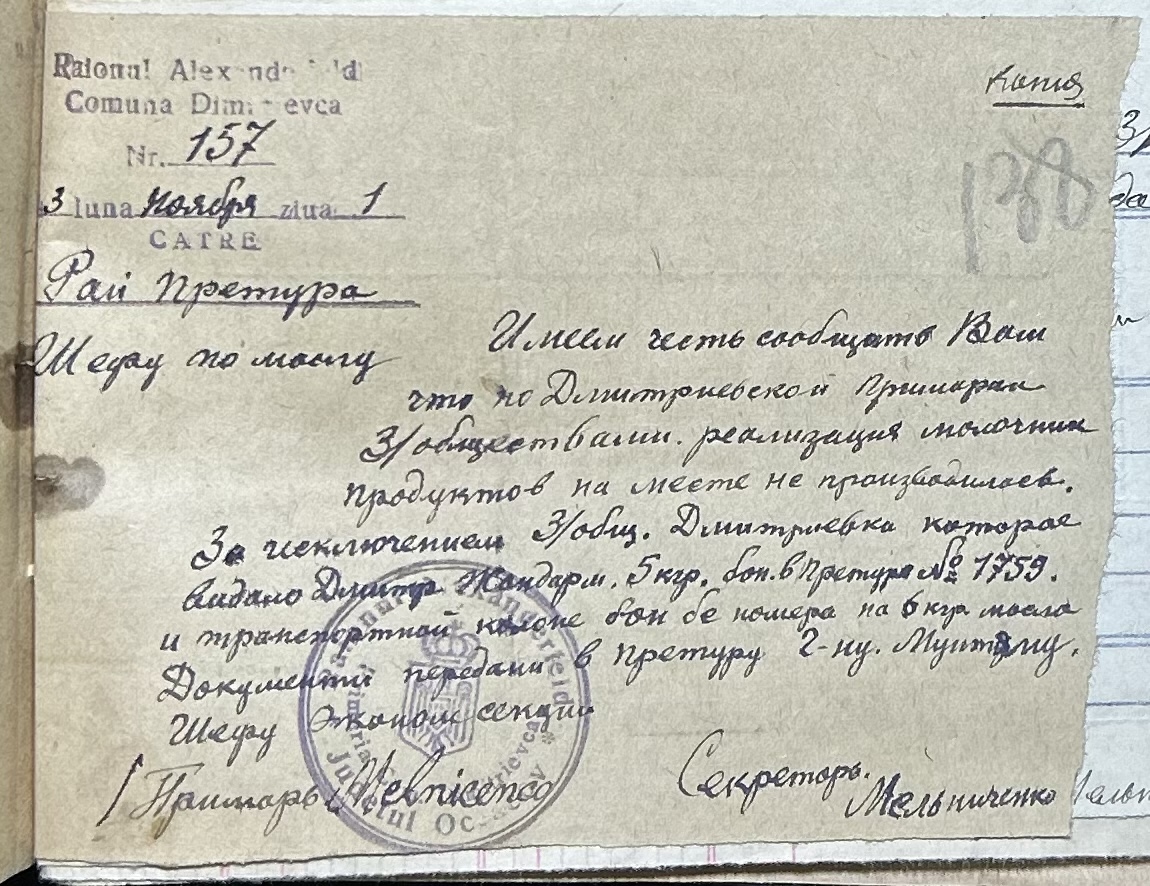 Raionul Alexanderfeld
Comuna Dimitrievca
Nr. 157
3 luna ноября ziua 1
CATRE
Рай Претура
Шефу по маслу
Копия
138
Имеем честь сообщать Вам
что по Дмитриевской Примарии
З/обществами. реализация молочних
продуктов на месте не производилось.
За исключением З/общ. Дмитриевка которое
видано Дмитр. Жандарм. 5 кгр. бон. в Претура № 1759.
и транспортной колоне бон бе номера на 6 кгр масла
Документи передани в претуру Г-ну. Мунтяну.
Шефу Эконом секции
Примарь Melnicenco
Секреторь.
Мельниченко
Judetul Oceacov